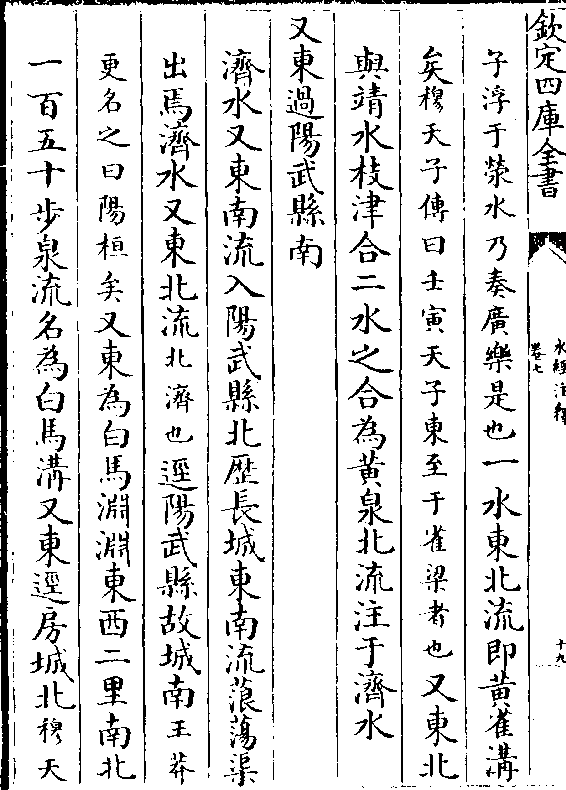 欽定四庫全書
水經注釋
卷七
十九
子浮于滎水乃奏廣樂是也一水東北流即黃雀溝
矣穆天子傳曰壬寅天子東至于雀梁者也又東北
與靖水枝津合二水之合為黃泉北流注于濟水
又東過陽武縣南
濟水又東南流入陽武縣北歷長城東南流蒗蕩渠
出焉濟水又東北流北濟也逕陽武縣故城南王莽
更名之曰陽桓矣又東為白馬淵淵東西二里南北
一百五十步泉流名為白馬溝又東逕房城北穆天